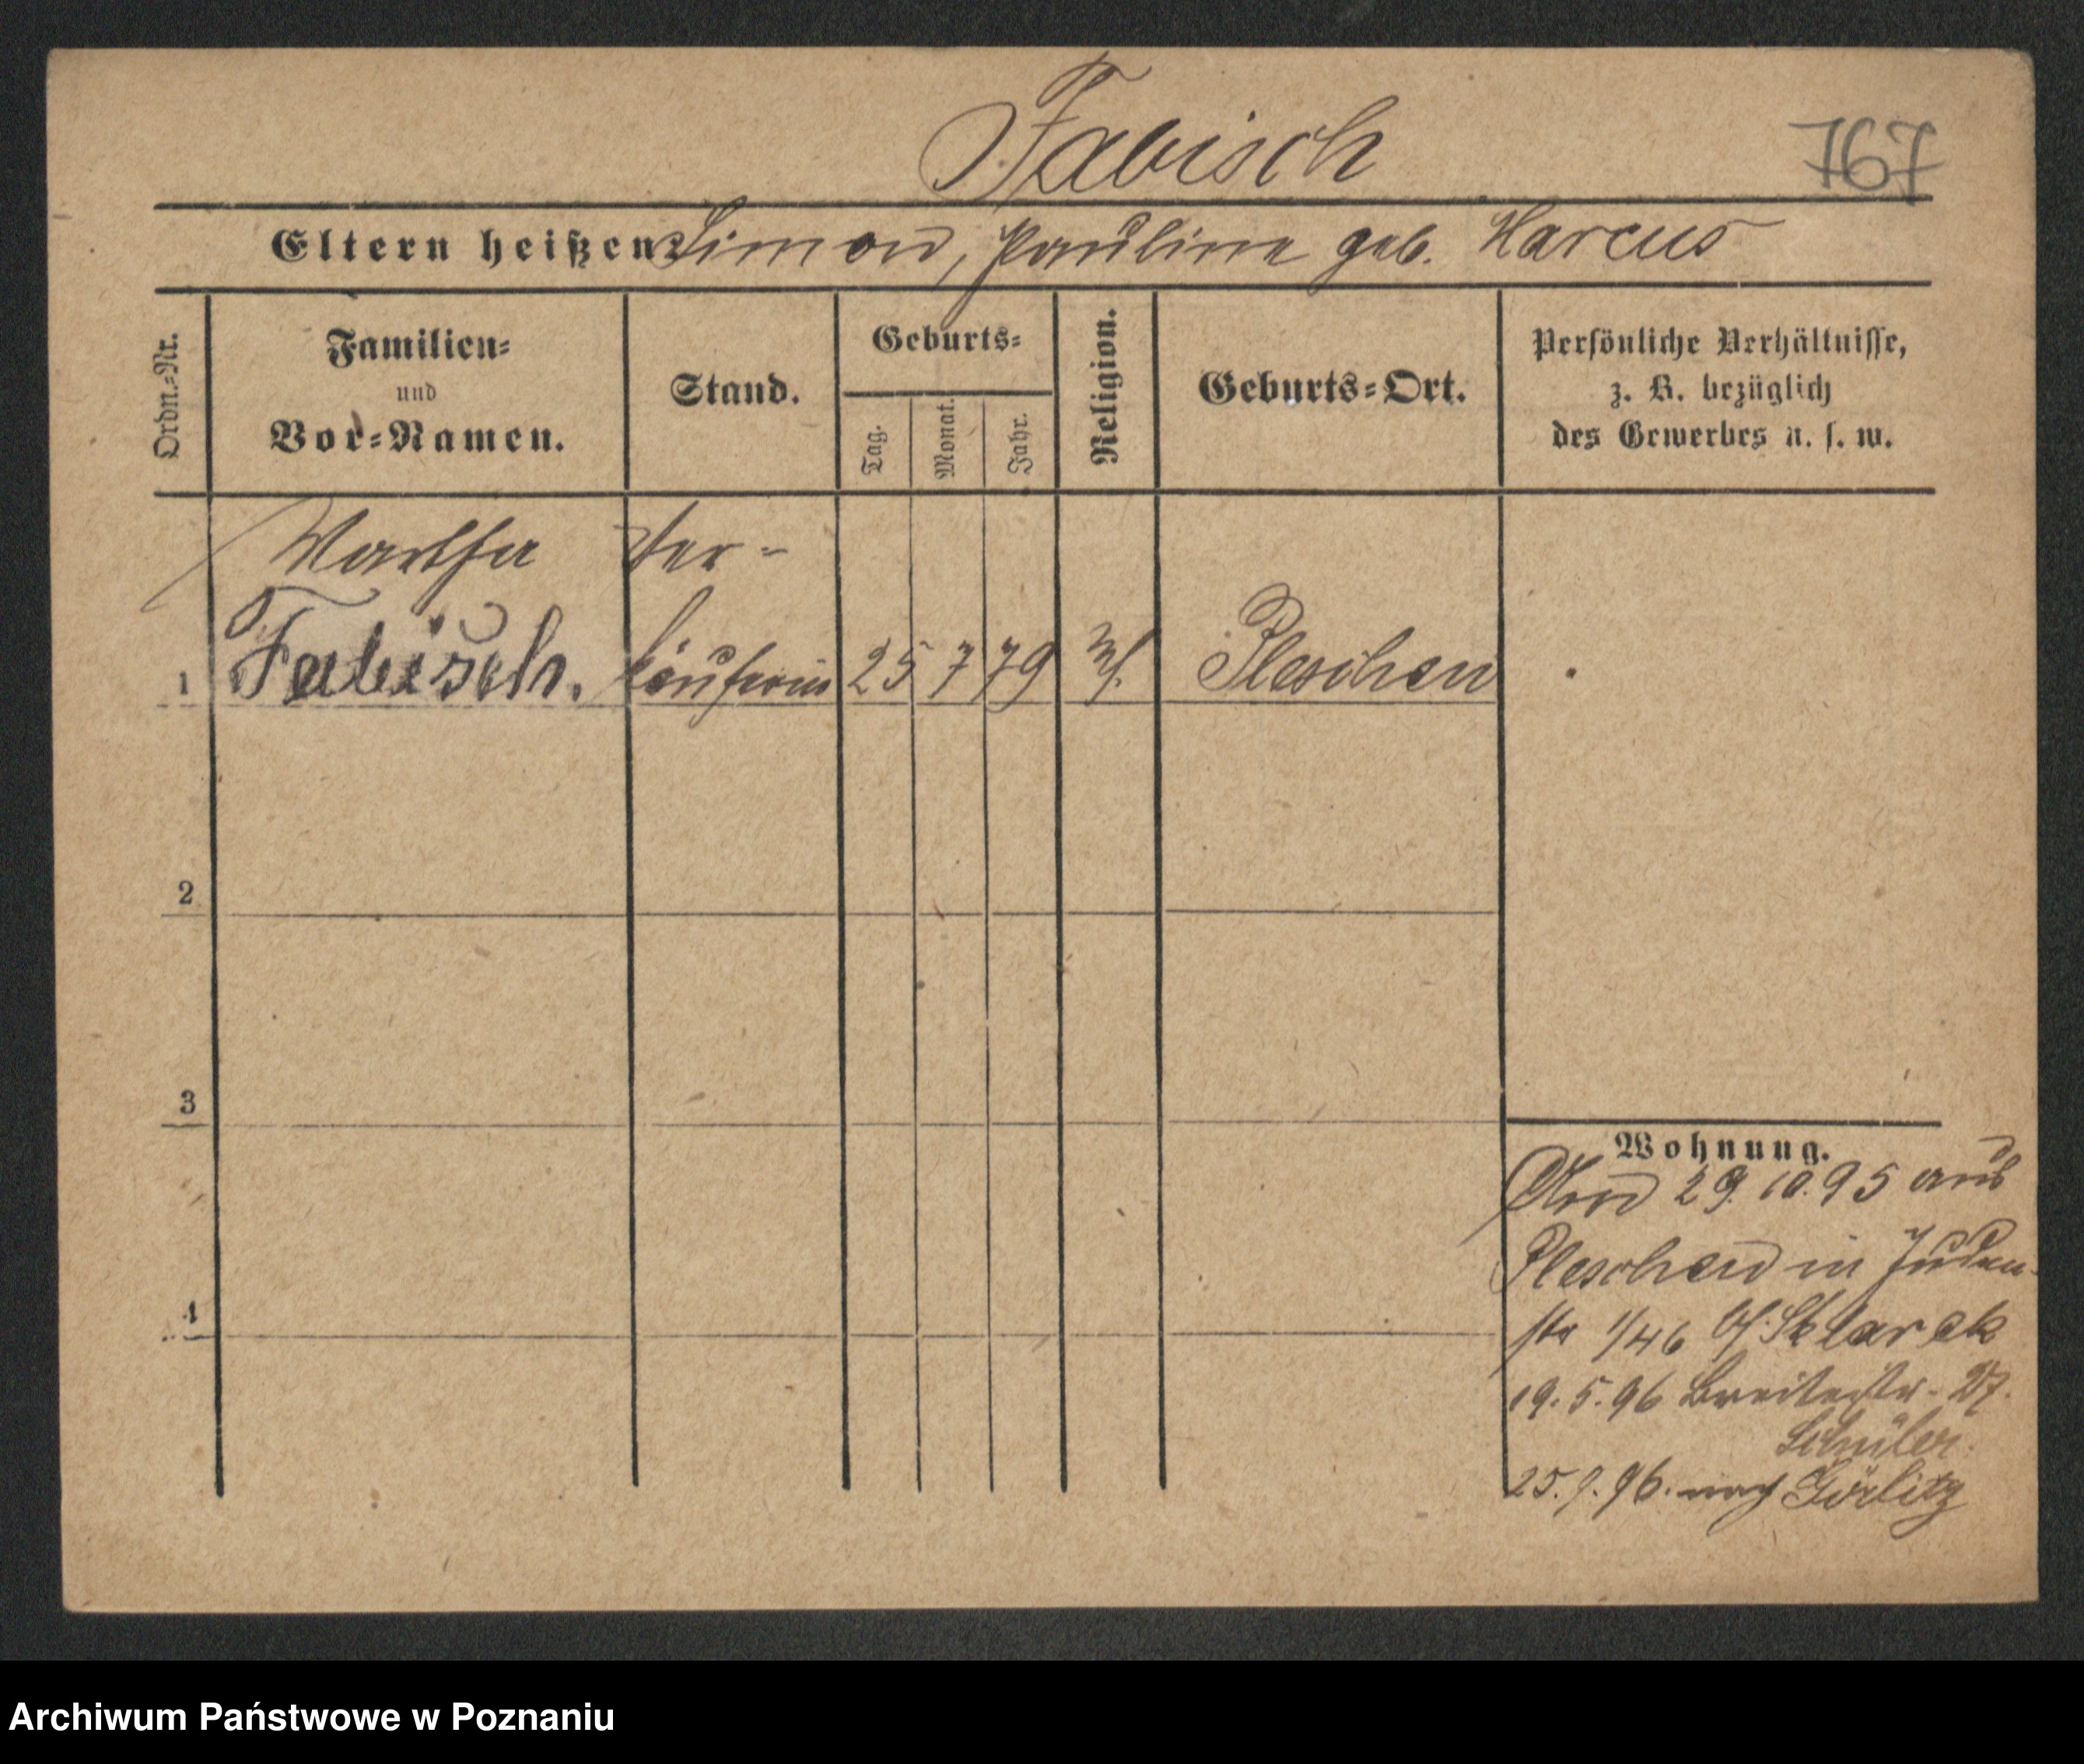 Fabisch
767
Eltern heißen: Simon, Pauline geb. Marcus
Ordn.=Nr.
Familien=
und
Vor=Namen.
Stand.
Geburts=
Tag.
Monat.
Jahr.
Religion.
Geburts=Ort.
Persönliche Verhältnisse,
z. B. bezüglich
des Gewerbes u. s. w.
Martha
Ver=
1 Fabisch. käuferin 25 7 79 Pleschen
2
3
4
Wohnung.
29. 10. 95 aus
Pleschen in Juden-
str 1/46 b/ Sklarek
19. 5. 96 Breitestr. 27.
Schüler.
25. 9. 96. nach Görlitz
Archiwum Państwowe w Poznaniu